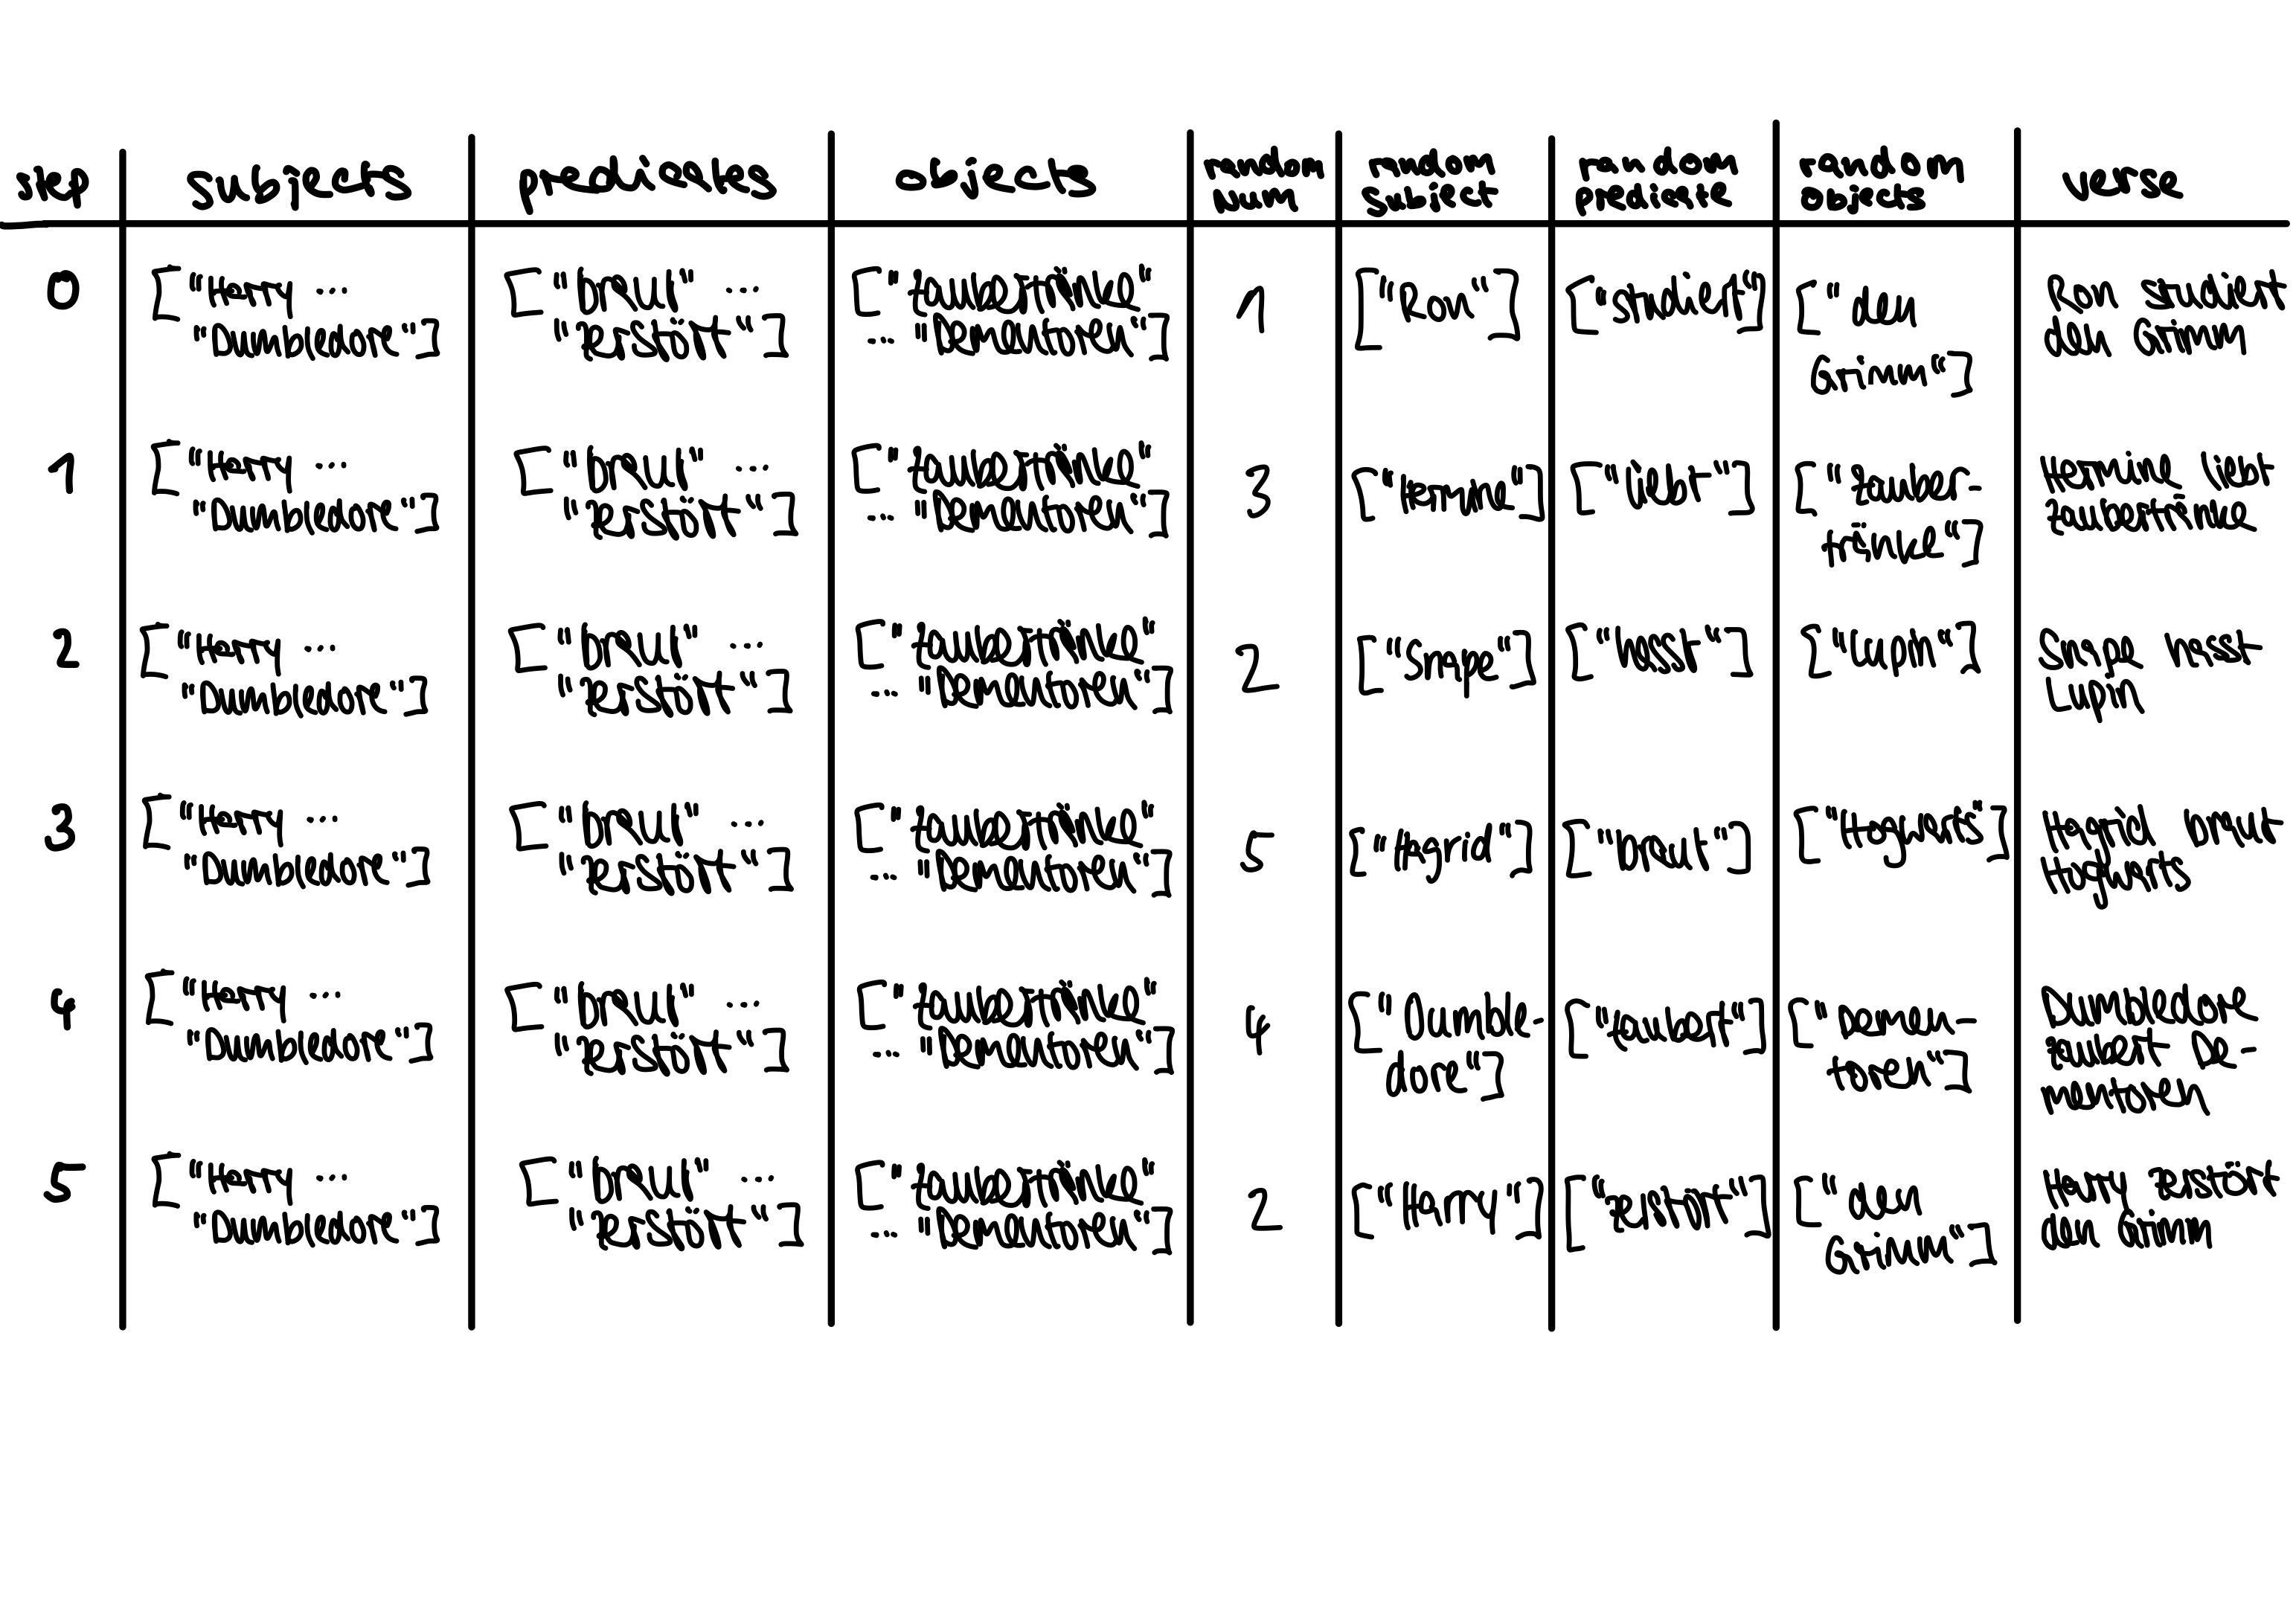 step subjects predicates objects random num random subject random predicate random objects verse
0 ["Harry ... "Dumbledore"] ["braut" ... "zerstört"] ["Zaubertränke" ... "Dementoren"] 1 ["Ron"] ["studiert"] ["den Grimm"] Ron studiert den Grimm
1 ["Harry ... "Dumbledore"] ["braut" ... "zerstört"] ["Zaubertränke" ... "Dementoren"] 3 ["Hermine"] ["liebt"] ["Zauber-tränke"] Hermine liebt Zaubertränke
2 ["Harry ... "Dumbledore"] ["braut" ... "zerstört"] ["Zaubertränke" ... "Dementoren"] 2 ["Snape"] ["hasst"] ["Lupin"] Snape hasst Lupin
3 ["Harry ... "Dumbledore"] ["braut" ... "zerstört"] ["Zaubertränke" ... "Dementoren"] 5 ["Hagrid"] ["braut"] ["Hogwarts"] Hagrid braut Hogwarts
4 ["Harry ... "Dumbledore"] ["braut" ... "zerstört"] ["Zaubertränke" ... "Dementoren"] 4 ["Dumble-dore"] ["zaubert"] ["Demen-toren"] Dumbledore zaubert De-mentoren
5 ["Harry ... "Dumbledore"] ["braut" ... "zerstört"] ["Zaubertränke" ... "Dementoren"] 2 ["Harry"] ["zerstört"] ["den Grimm"] Harry zerstört den Grimm